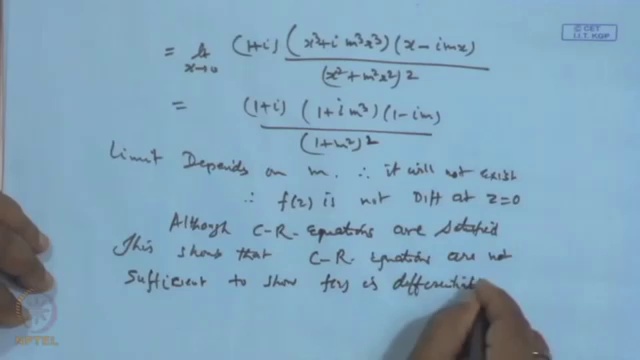 © CET
I.I.T. KGP
= lt x→0 (1+i) (x³+i m³x³) (x-imx) / (x²+m²x²)2
= (1+i) (1+i m³) (1-im) / (1+m²)2
Limit Depends on m. ∴ it will not exist
∴ f(z) is not Diff at z=0
Although C-R-Equations are satisfied
This shows that C-R- Equations are not
sufficient to show f(z) is
NPTEL